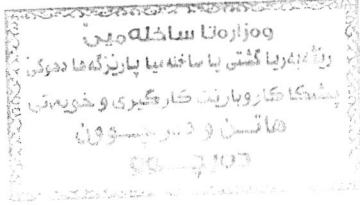 وەزارەتا ساخلەمیێ
رێڤەبەریا گشتی یا ساخلەمیا پارێزگەها دهوکێ
پشکا کاروبارێت کارگێری و خویەتی
هاتن و دەرچوون